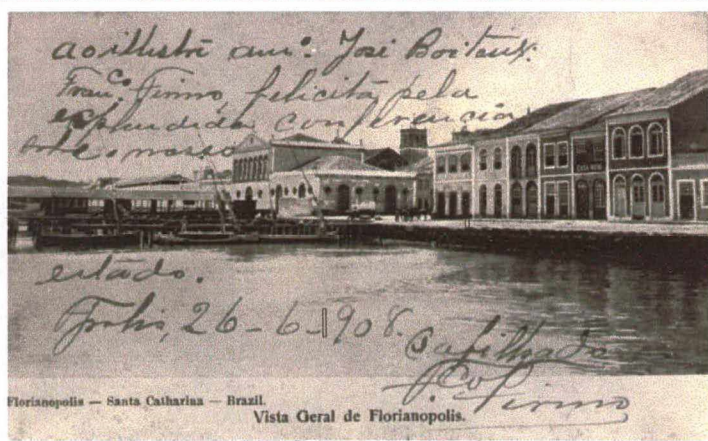 ao illustre amº. José Boiteux.
Franᶜᵒ Firmo, felicita pela
explendida conferencia
sobre o nosso
estado.
Fpolis, 26-6-1908.
F.ᶜᵒ Firmo
Florianopolis — Santa Catharina — Brazil.
Vista Geral de Florianopolis.